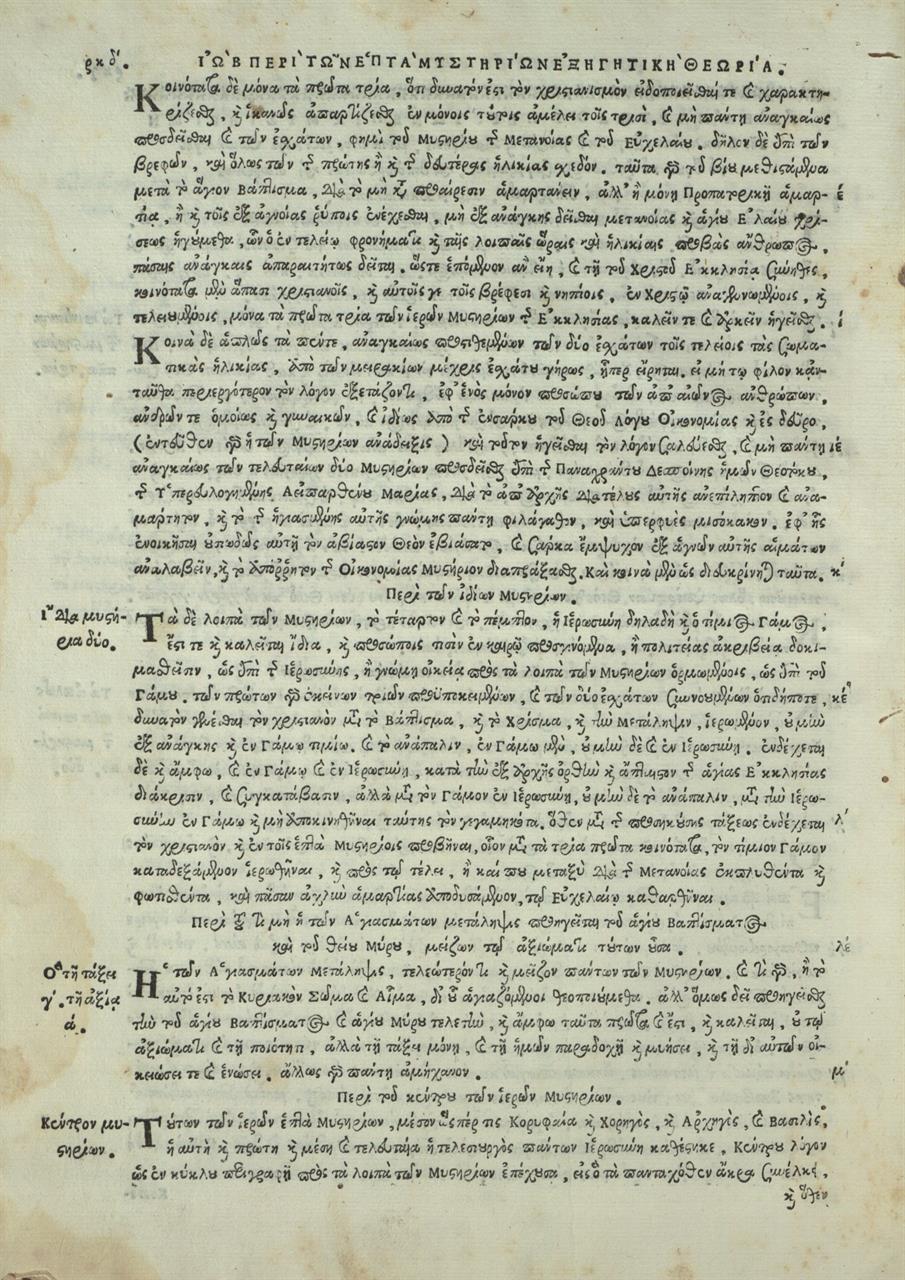 ρκδʹ. ΙΩ῀Β ΠΕΡΙ ΤΩ῀Ν Ε῾ΠΤΑ ΜΥΣΤΗΡΙΩΝ ΕΞΗΓΗΤΙΚΗ ΘΕΩΡΙΑ.
Κοινότατα δὲ μόνα τὰ πρῶτα τρία, ὅτι δυνατόν ἐστι τὸν χριστιανισμὸν εἰδοποιεῖσθαί τε καὶ χαρακτη-
ρίζεσθαι, καὶ ἱκανῶς ἀπαρτίζεσθαι ἐν μόνοις τούτοις ἀμέλει τοῖς τρισὶ, καὶ μὴ πάντῃ ἀναγκαίως
προσδεῖσθαι καὶ τῶν ἐσχάτων, φημὶ τοῦ Μυστηρίου τῆς Μετανοίας καὶ τοῦ Εὐχελαίου. δῆλον δὲ ἐπὶ τῶν
βρεφῶν, καὶ ὅλως τῶν τῆς πρώτης ἢ καὶ τῆς δευτέρας ἡλικίας σχεδόν. ταῦτα γὰρ τοῦ βίου μεθιστάμενα
μετὰ τὸ ἅγιον Βάπτισμα, διὰ τὸ μὴ κατὰ προαίρεσιν ἁμαρτάνειν, ἀλλ' ἢ μόνῃ Προπατορικῇ ἁμαρ- έ
τίᾳ, ἢ καὶ τοῖς ἐξ ἀγνοίας ῥύποις ἐνέχεσθαι, μὴ ἐξ ἀνάγκης δεῖσθαι μετανοίας καὶ ἁγίου Ἐλαίου χρί-
σεως ἡγούμεθα, ὧν ὁ ἐν τελείῳ φρονήματι καὶ ταῖς λοιπαῖς ὥραις καὶ ἡλικίαις προβὰς ἄνθρωπος,
πάσαις ἀνάγκαις ἀπαραιτήτως δεῖται. ὥστε ἑπόμενον ἂν εἴη, καὶ τῇ τοῦ Χριστοῦ Ἐκκλησίᾳ σύνηθες,
κοινότατα μὲν ἅπασι χριστιανοῖς, καὶ αὐτοῖς γε τοῖς βρέφεσι καὶ νηπίοις, ἐν Χριστῷ ἀναγεννωμένοις, καὶ
τελειουμένοις, μόνα τὰ πρῶτα τρία τῶν ἱερῶν Μυστηρίων τῆς Ἐκκλησίας, καλεῖν τε καὶ ἀρκεῖν ἡγεῖσθαι. ί
Κοινὰ δὲ ἁπλῶς τὰ πέντε, ἀναγκαίως προστιθεμένων τῶν δύο ἐσχάτων τοῖς τελείοις τὰς σωμα-
τικὰς ἡλικίας, ἀπὸ τῶν μειρακίων μέχρις ἐσχάτου γήρως, ᾗπερ εἴρηται. εἰ μή τῳ φίλον κἀν-
ταῦθα περιεργότερον τὸν λόγον ἐξετάζοντι, ἐφ' ἑνὸς μόνον προσώπου τῶν ἀπ' αἰῶνος ἀνθρώπων,
ἀνδρῶν τε ὁμοίως καὶ γυναικῶν, καὶ ἰδίως ἀπὸ τῆς ἐνσάρκου τοῦ Θεοῦ Λόγου Οἰκονομίας καὶ ἐς δεῦρο,
(ἐντεῦθεν γὰρ ἡ τῶν Μυστηρίων ἀνάδειξις) καὶ τοῦτον ἡγεῖσθαι τὸν λόγον σαλεύεσθαι, καὶ μὴ πάντῃ ιέ
ἀναγκαίως τῶν τελευταίων δύο Μυστηρίων προσδεῖσθαι ἐπὶ τῆς Παναχράντου Δεσποίνης ἡμῶν Θεοτόκου,
τῆς Ὑπερευλογημένης Ἀειπαρθένου Μαρίας, διὰ τὸ ἀπ' ἀρχῆς διὰ τέλους αὐτῆς ἀνεπίληπτον καὶ ἀνα-
μάρτητον, καὶ τὸ τῆς ἡγιασμένης αὐτῆς γνώμης πάντῃ φιλάγαθον, καὶ ὑπερφυὲς μισόκακον. ἐφ' ἧς
ἐνοικῆσαι εὐπόδως αὐτῇ τὸν ἀβίαστον Θεὸν ἐβιάσατο, καὶ σάρκα ἔμψυχον ἐξ ἁγνῶν αὐτῆς αἱμάτων
ἀναλαβεῖν, καὶ τὸ ἀπόῤῥητον τῆς Οἰκονομίας Μυστήριον διαπράξασθαι. Καὶ κοινὰ μὲν ὡς διευκρίνηται ταῦτα. κʹ
Περὶ τῶν ἰδίων Μυστηρίων.
Ἴδια μυστή- Τὰ δὲ λοιπὰ τῶν Μυστηρίων, τὸ τέταρτον καὶ τὸ πέμπτον, ἡ Ἱερωσύνη δηλαδὴ καὶ ὁ τίμιος Γάμος,
ρια δύο. ἔστι τε καὶ καλεῖται ἴδια, καὶ προσώποις τισὶν ἐν καιρῷ προσγινόμενα, ἢ πολιτείας ἀκριβείᾳ δοκι-
μασθεῖσιν, ὡς ἐπὶ τῆς Ἱερωσύνης, ἢ γνώμῃ οἰκείᾳ πρὸς τὰ λοιπὰ τῶν Μυστηρίων ὁρμωμένοις, ὡς ἐπὶ τοῦ
Γάμου. τῶν πρώτων γὰρ ἐκείνων τριῶν προϋποκειμένων, καὶ τῶν δύο ἐσχάτων συνουμένων ὁτιδήποτε, κέ
δυνατὸν γενέσθαι τὸν χριστιανὸν μετὰ τὸ Βάπτισμα, καὶ τὸ Χρίσμα, καὶ τὴν Μετάληψιν, ἱερωμένον, οὐ μὴν
ἐξ ἀνάγκης καὶ ἐν Γάμῳ τιμίῳ. καὶ τὸ ἀνάπαλιν, ἐν Γάμῳ μὲν, οὐ μὴν δὲ καὶ ἐν Ἱερωσύνῃ. ἐνδέχεται
δὲ καὶ ἄμφω, καὶ ἐν Γάμῳ καὶ ἐν Ἱερωσύνῃ, κατὰ τὴν ἐξ ἀρχῆς ὀρθὴν καὶ ἄπταιστον τῆς ἁγίας Ἐκκλησίας
διάκρισιν, καὶ συγκατάβασιν, ἀλλὰ μετὰ τὸν Γάμον ἐν Ἱερωσύνῃ, οὐ μὴν δὲ τὸ ἀνάπαλιν, μετὰ τὴν Ἱερω-
σύνην ἐν Γάμῳ καὶ μὴ ἀποκινηθῆναι ταύτης τὸν γεγαμηκότα. ὅθεν μετὰ τῆς προσηκούσης τάξεως ἐνδέχεται λʹ
τὸν χριστιανὸν καὶ ἐν τοῖς ἑπτὰ Μυστηρίοις προβῆναι, οἷον μετὰ τὰ τρία πρῶτα κοινότατα, τὸν τίμιον Γάμον
καταδεξάμενον ἱερωθῆναι, καὶ πρὸς τῷ τέλει, ἢ καί που μεταξὺ διὰ τῆς Μετανοίας ἐκπλυθέντα καὶ
φωτισθέντα, καὶ πᾶσαν ἀχλὺν ἁμαρτίας ἀποδυσάμενον, τῷ Εὐχελαίῳ καθαρθῆναι.
Περὶ τοῦ ὅτι μὴ ἡ τῶν Ἁγιασμάτων μετάληψις προηγεῖται τοῦ ἁγίου Βαπτίσματος
καὶ τοῦ θείου Μύρου, μείζων τῷ ἀξιώματι τούτων οὖσα. λέ
Ὅτι τῇ τάξει Ἡ τῶν Ἁγιασμάτων Μετάληψις, τελεώτερόν τι καὶ μεῖζον πάντων τῶν Μυστηρίων. καὶ τί γὰρ, ἢ τὸ
γʹ. τῇ ἀξίᾳ αὐτό ἐστι τὸ Κυριακὸν Σῶμα καὶ Αἷμα, δι' οὗ ἁγιαζόμενοι θεοποιούμεθα. ἀλλ' ὅμως δεῖ προηγεῖσθαι
ά. τὴν τοῦ ἁγίου Βαπτίσματος καὶ ἁγίου Μύρου τελετὴν, καὶ ἄμφω ταῦτα πρῶτα καὶ ἔστι, καὶ καλεῖται, οὐ τῷ
ἀξιώματι καὶ τῇ ποιότητι, ἀλλὰ τῇ τάξει μόνῃ, καὶ τῇ ἡμῶν παραδοχῇ καὶ μυήσει, καὶ τῇ δι' αὐτῶν οἰ-
κειώσει τε καὶ ἑνώσει. ἄλλως γὰρ πάντῃ ἀμήχανον. μʹ
Περὶ τοῦ κέντρου τῶν ἱερῶν Μυστηρίων.
Κέντρον μυ- Τούτων τῶν ἱερῶν ἑπτὰ Μυστηρίων, μέσον ὥσπερ τις Κορυφαία καὶ Χορηγὸς, καὶ Ἀρχηγὸς, καὶ Βασιλὶς,
στηρίων. ἡ αὐτὴ καὶ πρώτη καὶ μέση καὶ τελευταία ἡ τελεσιουργὸς πάντων Ἱερωσύνη καθέστηκε, Κέντρου λόγον
ὡς ἐν κύκλου περιγραφῇ πρὸς τὰ λοιπὰ τῶν Μυστηρίων ἐπέχουσα, εἰς ὃ τὰ πανταχόθεν ἄκρα συνέλκε,
καὶ ὅθεν